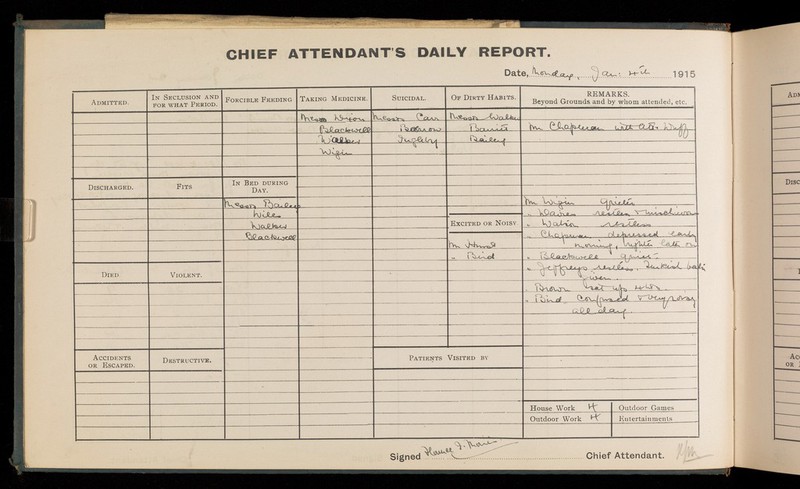 CHIEF ATTENDANT'S DAILY REPORT.
Date, Monday, Jan: 4th 1915
ADMITTED.
IN SECLUSION AND FOR WHAT PERIOD.
FORCIBLE FEEDING
TAKING MEDICINE.
Messrs Wixon
Blackwell
Walker
Wigin
SUICIDAL.
Messrs Carr
Barrow
Ingleby
OF DIRTY HABITS.
Messrs Walker
Barritt
Bailey
REMARKS.
Beyond Grounds and by whom attended, etc.
Mr Chapman with Attn Wuff
DISCHARGED.
FITS
IN BED DURING DAY.
Messrs Bailey
Wiles
Walker
Blackwell
EXCITED OR NOISY
Mr
" Bird
Mr Wigin Quieter
" Davies restless & mischievous
" Watson restless
" Chapman depressed early
morning, brighter later on
" Blackwell quiet
" Jeffreys restless. Turkish bath
given.
" Brown sat up 4 hrs.
" Bird Confused & very noisy
all day.
DIED
VIOLENT.
ACCIDENTS OR ESCAPED.
DESTRUCTIVE.
PATIENTS VISITED BY
House Work 4
Outdoor Games
Outdoor Work 4
Entertainments
Signed
Chief Attendant.
ADM
DISC
AC
OR